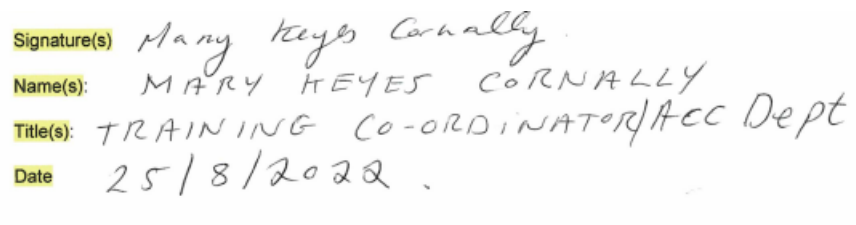 Signature(s) Mary Keyes Cornally.
Name(s): MARY KEYES CORNALLY
Title(s): TRAINING CO-ORDINATOR/ACC Dept
Date 25/8/2022.